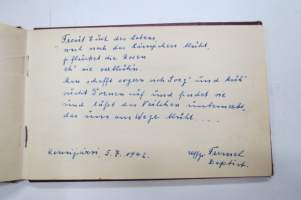 Freut Euch des Lebens,
weil noch das Lämpchen glüht,
pflücket die Rosen
eh' sie verblüh'n.
Man schafft so gern sich Sorg' und Müh'
sucht Dornen auf und findet sie
und läßt das Veilchen unbemerkt,
das uns am Wege blüht....
5.7.1942.
Uffz.